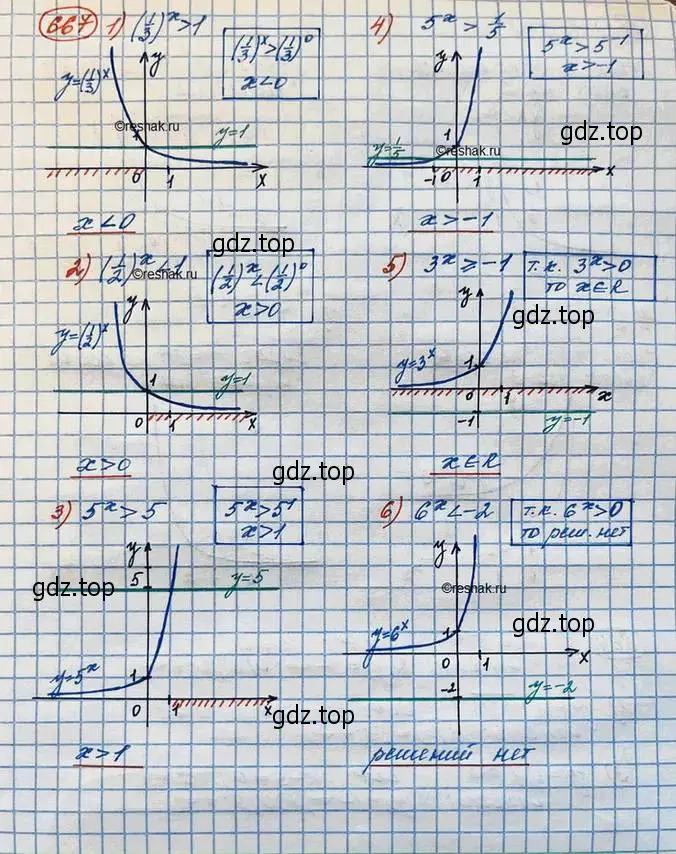 667 1) (1/3)^x > 1
(1/3)^x > (1/3)^0
x < 0
y
y=(1/3)^x
©reshak.ru
1
y=1
0
1
x
x < 0
4) 5^x > 1/5
5^x > 5^-1
x > -1
y
gdz.top
1
y=1/5
©reshak.ru
-1 0 1 x
x > -1
2) (1/2)^x < 1
gdz.top
©reshak.ru
(1/2)^x < (1/2)^0
x > 0
y
y=(1/2)^x
1
y=1
0 1 x
x > 0
5) 3^x ⩾ -1
т.к. 3^x > 0
то x∈R
y
gdz.top
y=3^x
1
0 1 x
-1
y=-1
x∈R
gdz.top
3) 5^x > 5
5^x > 5^1
x > 1
y
5
y=5
gdz.top
y=5^x
1
0 1 x
gdz.top
x > 1
6) 6^x < -2
т.к. 6^x > 0
то реш. нет
y
©reshak.ru
gdz.top
y=6^x
1
0 1 x
-2
y=-2
решений нет